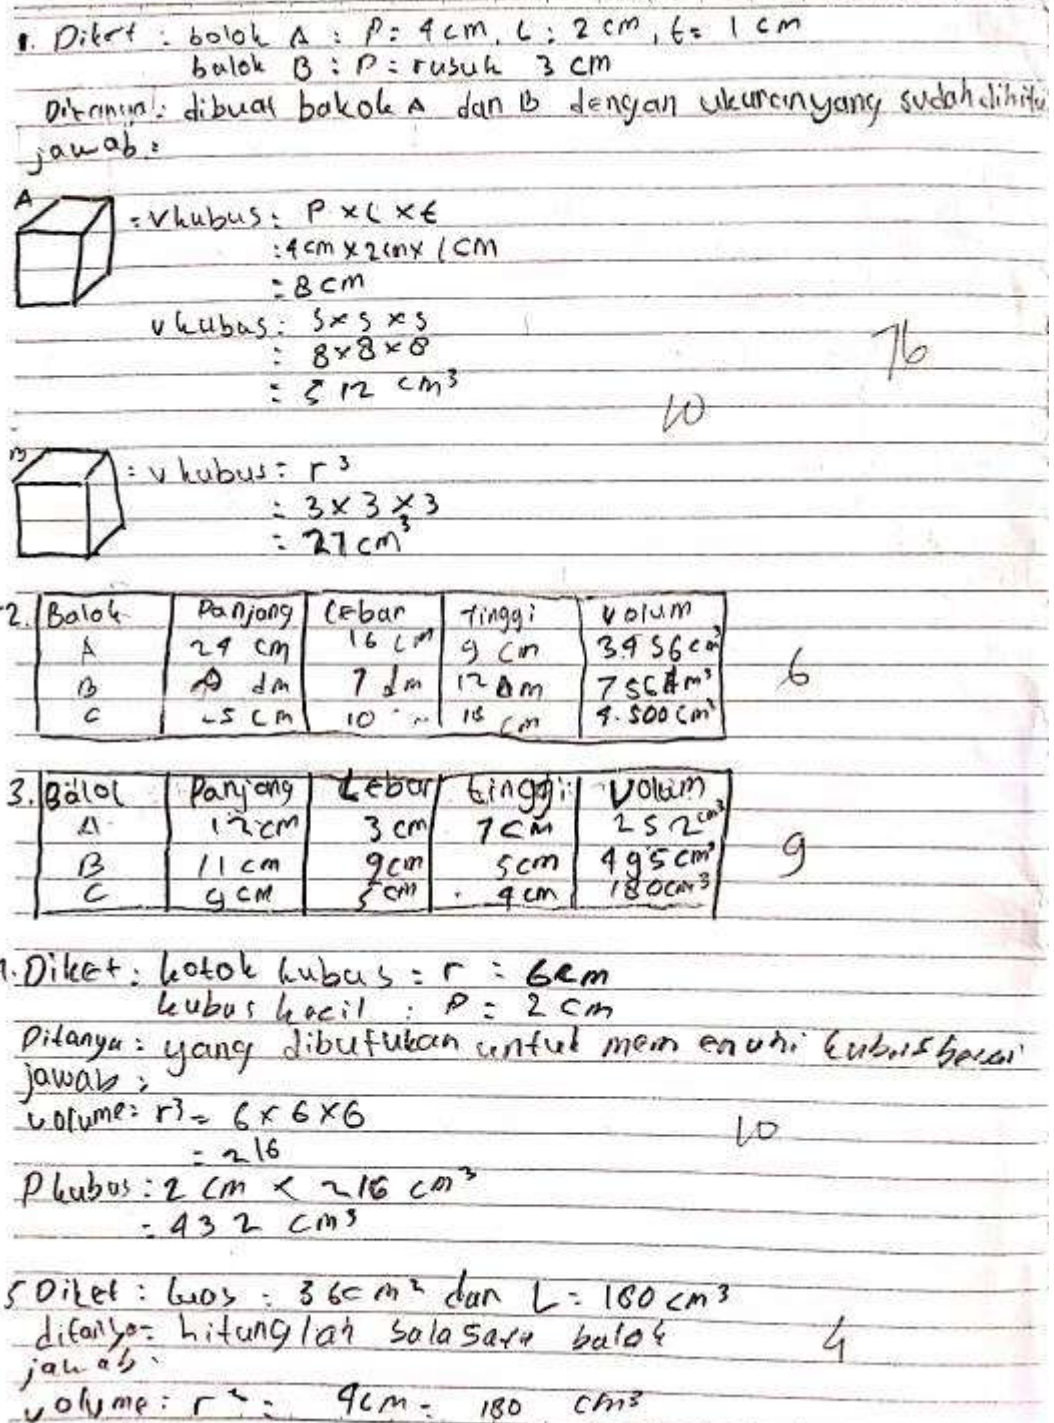 1. Diket : bolok A : P: 4 cm, L : 2 cm, t = 1 cm
balok B : P = rusuk 3 cm
dibuat bakok A dan B dengan ukuranyang sudah
jawab :
A
= V kubus : P x L x t
: 4 cm x 2 cm x 1 cm
: 8 cm
V kubus : 5 x 5 x 5
: 8 x 8 x 8
: 512 cm³
76
10
B
: V kubus = r³
: 3 x 3 x 3
: 27 cm³
2. Balok Panjang Lebar tinggi volum
A 24 cm 16 cm 9 cm 3456 cm³
B dm 7 dm 12 dm 756 dm³
C 25 cm 10 18 cm 4.500 cm³
6
3. Balok Panjang Lebar tinggi Volum
A 12 cm 3 cm 7 cm 252 cm³
B 11 cm 9 cm 5 cm 495 cm³
C 9 cm 5 cm 4 cm 180 cm³
9
Diket : kotok kubus : r : 6 cm
kubus kecil : P = 2 cm
Ditanya : yang dibutukan untuk mem enuhi kubus
jawab :
volume : r³ = 6 x 6 x 6
= 216
10
P kubus : 2 cm x 216 cm³
: 432 cm³
5 Diket : luas : 36 cm² dan L = 180 cm³
hitunglah balok
4
jawab :
volume : r² : 4 cm = 180 cm³